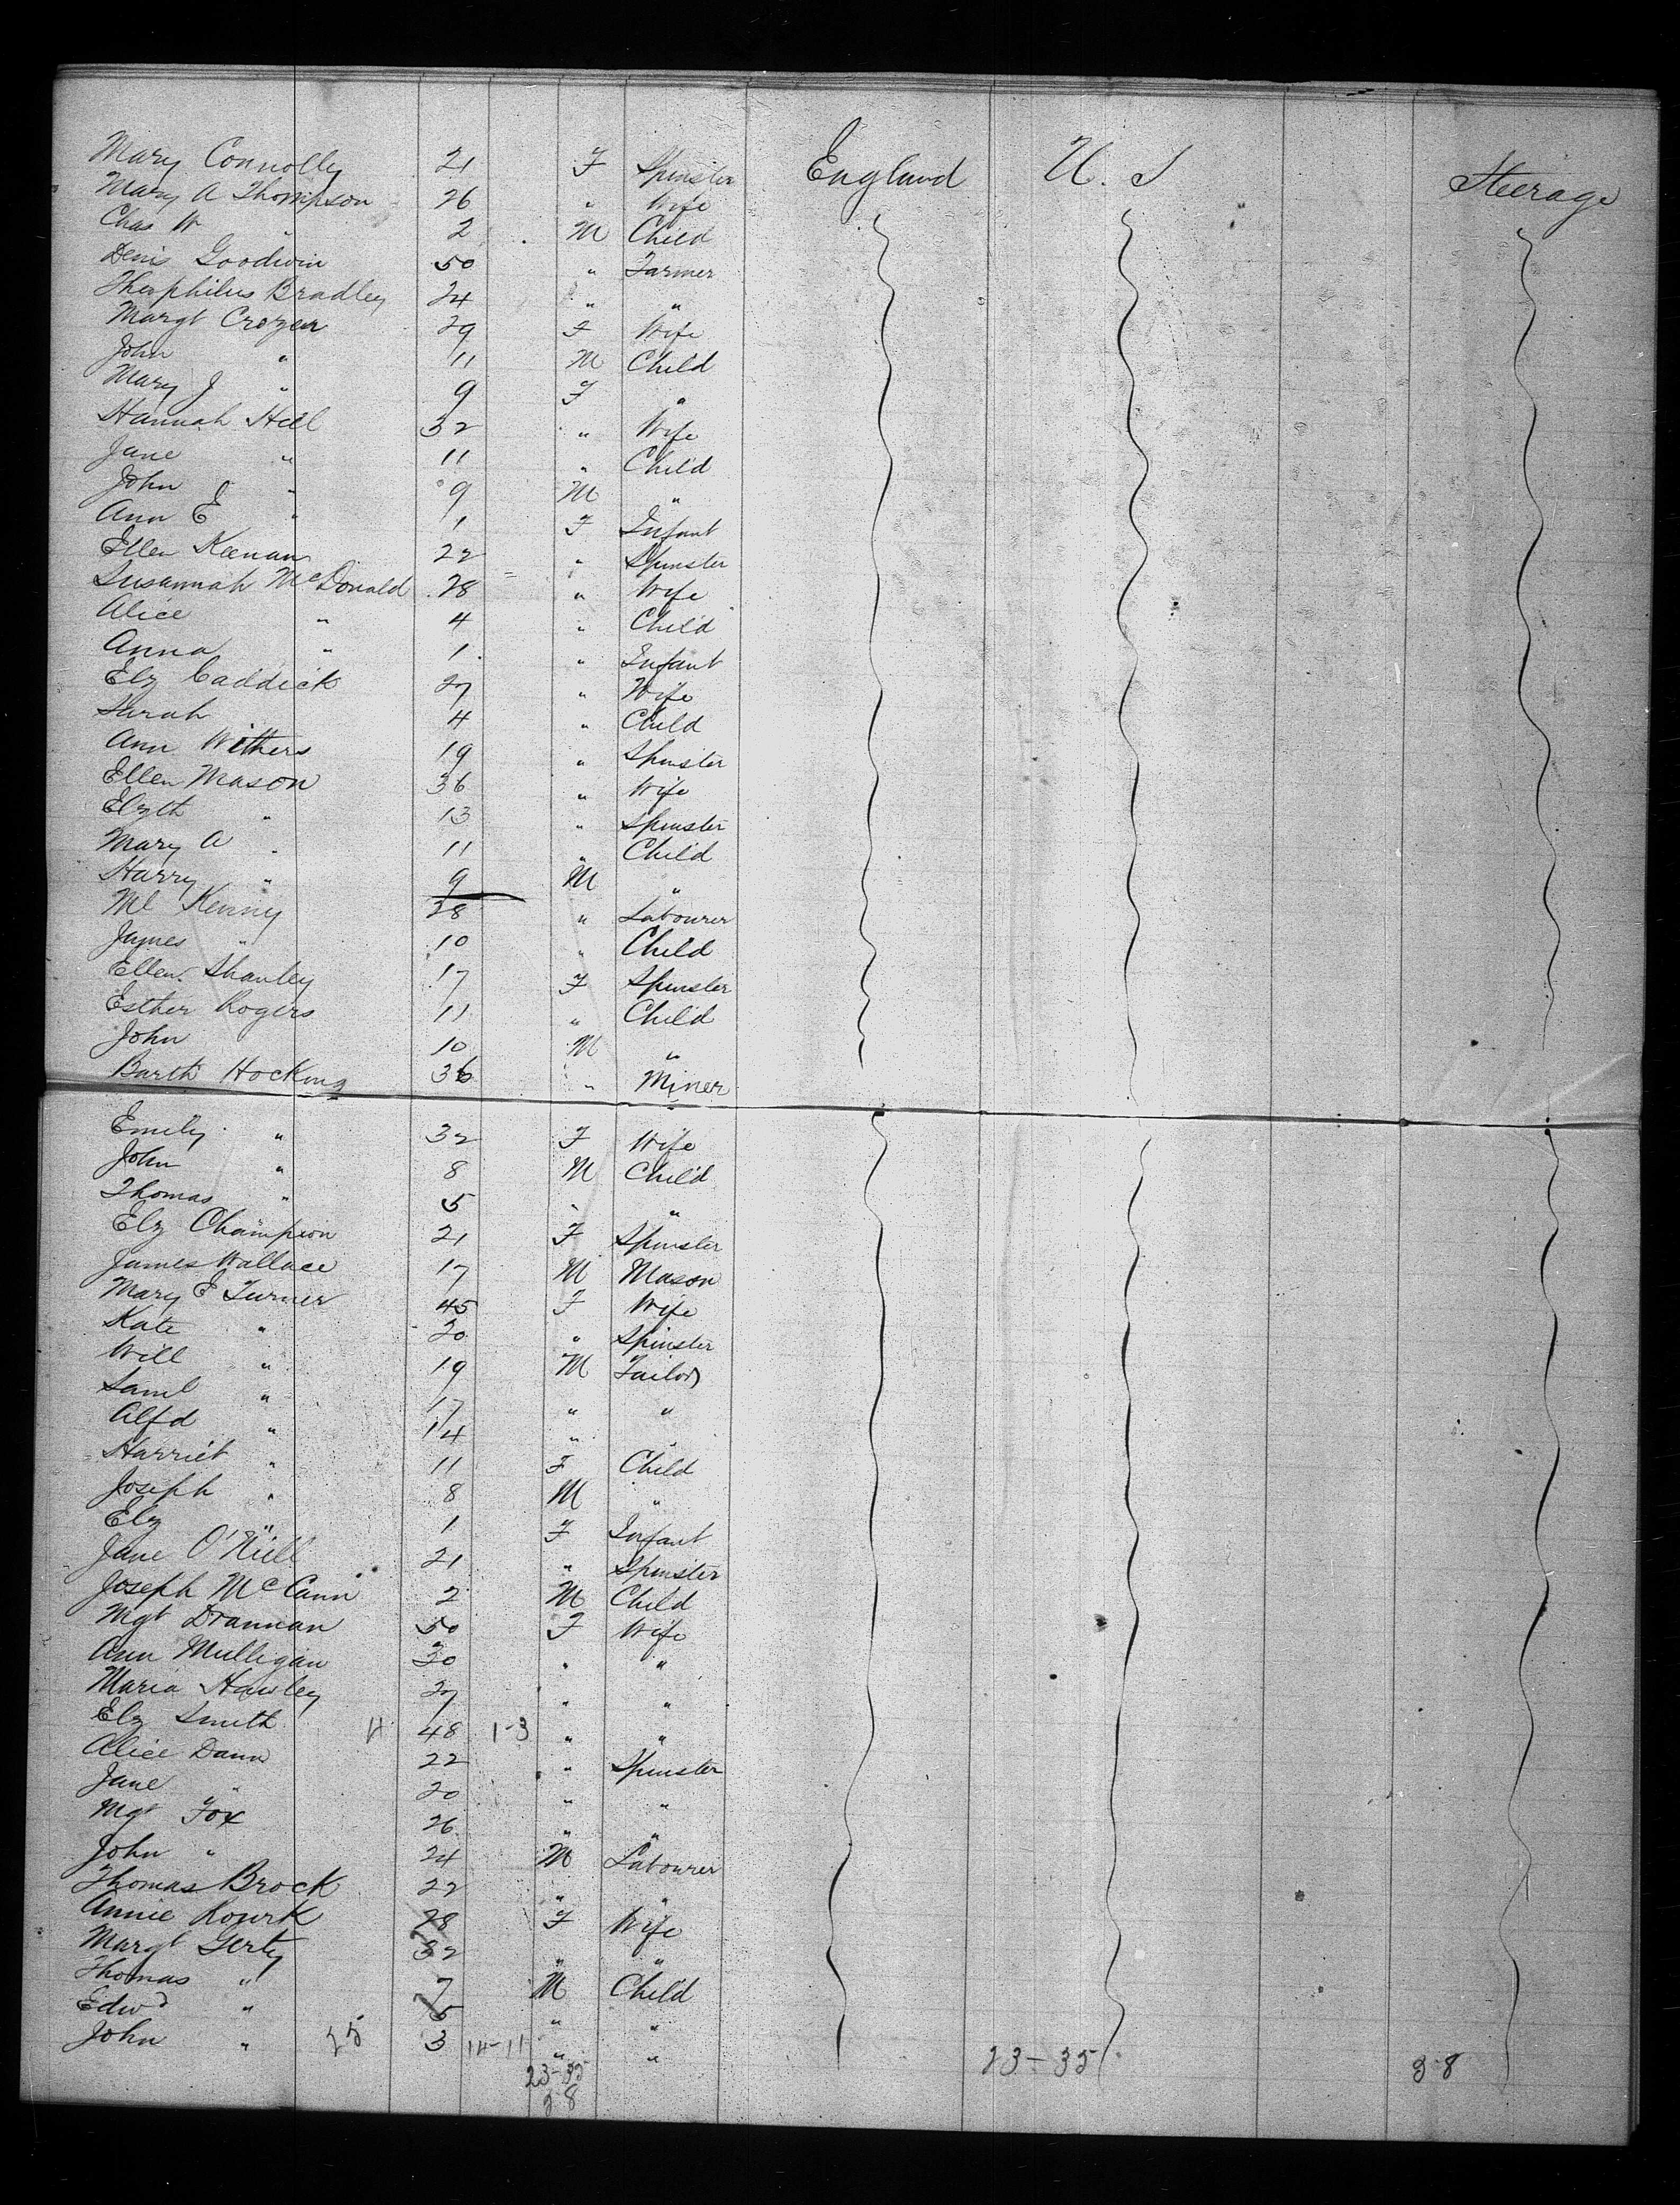 Mary Connolly 21 F Spinster England U. S Steerage
Mary A Thompson 26 " Wife
Chas W " 2 M Child
Denis Goodwin 50 " Farmer
Theophilus Bradley 24 " "
Margt Crozer 29 F Wife
John " 11 M Child
Mary J " 9 F "
Hannah Hill 32 " Wife
Jane " 11 " Child
John " 9 M "
Ann E " 1 F Infant
Ellen Keenan 22 " Spinster
Susannah McDonald 28 " Wife
Alice " 4 " Child
Anna " 1 " Infant
Elz Caddick 27 " Wife
Sarah 4 " Child
Ann Withers 19 " Spinster
Ellen Mason 36 " Wife
Elzth " 13 " Spinster
Mary A " 11 " Child
Harry " 9 M "
Ml Kenny 28 " Labourer
James " 10 " Child
Ellen Shanley 17 F Spinster
Esther Rogers 11 " Child
John 10 M "
Barth Hocking 36 " Miner
Emily " 32 F Wife
John " 8 M Child
Thomas " 5 " "
Elz Champion 21 F Spinster
James Wallace 17 M Mason
Mary E Turner 45 F Wife
Kate " 20 " Spinster
Will " 19 M Tailor
Saml " 17 " "
Alfd " 14 " "
Harriet " 11 F Child
Joseph " 8 M "
Elz " 1 F Infant
Jane O'Neill 21 " Spinster
Joseph McCann 2 M Child
Mgt Drannan 50 F Wife
Ann Mulligan 30 " "
Maria Hawley 27 " "
Elz Smith 48 1-3 " "
Alice Dann 22 " Spinster
Jane " 20 " "
Mgt Fox 26 " "
John " 24 M Labourer
Thomas Brock 22 " "
Annie Rourk 28 F Wife
Margt Gerty 32 " "
Thomas " 7 M Child
Edwd " 5 " "
John " 25 3 14-11 " "
23-35 23-35 38
38